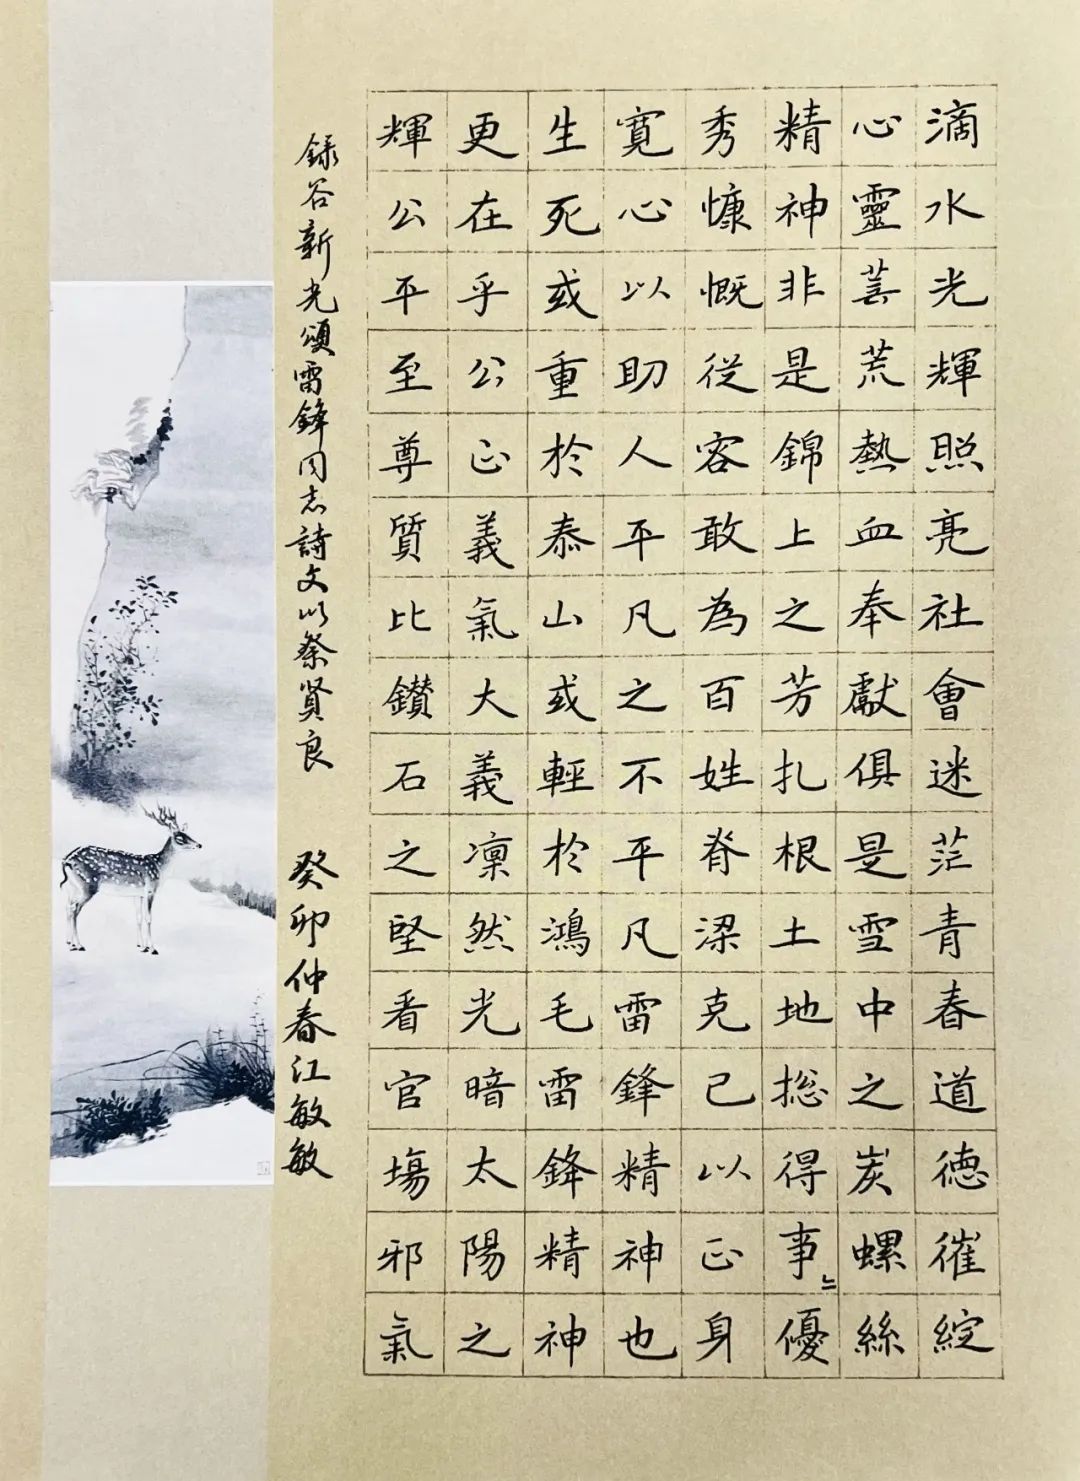 滴水光輝照亮社會迷茫青春道德催綻
心靈芸荒熱血奉獻俱是雪中之炭螺絲
精神非是錦上之芳扎根土地揔得事〻優
秀慷慨從容敢為百姓脊梁克己以正身
寬心以助人平凡之不平凡雷鋒精神也
生死或重於泰山或輕於鴻毛雷鋒精神
更在乎公正義氣大義凜然光暗太陽之
輝公平至尊質比鑽石之堅看官場邪氣
録谷新光頌雷鋒同志詩文以祭賢良
癸卯仲春江敏敏